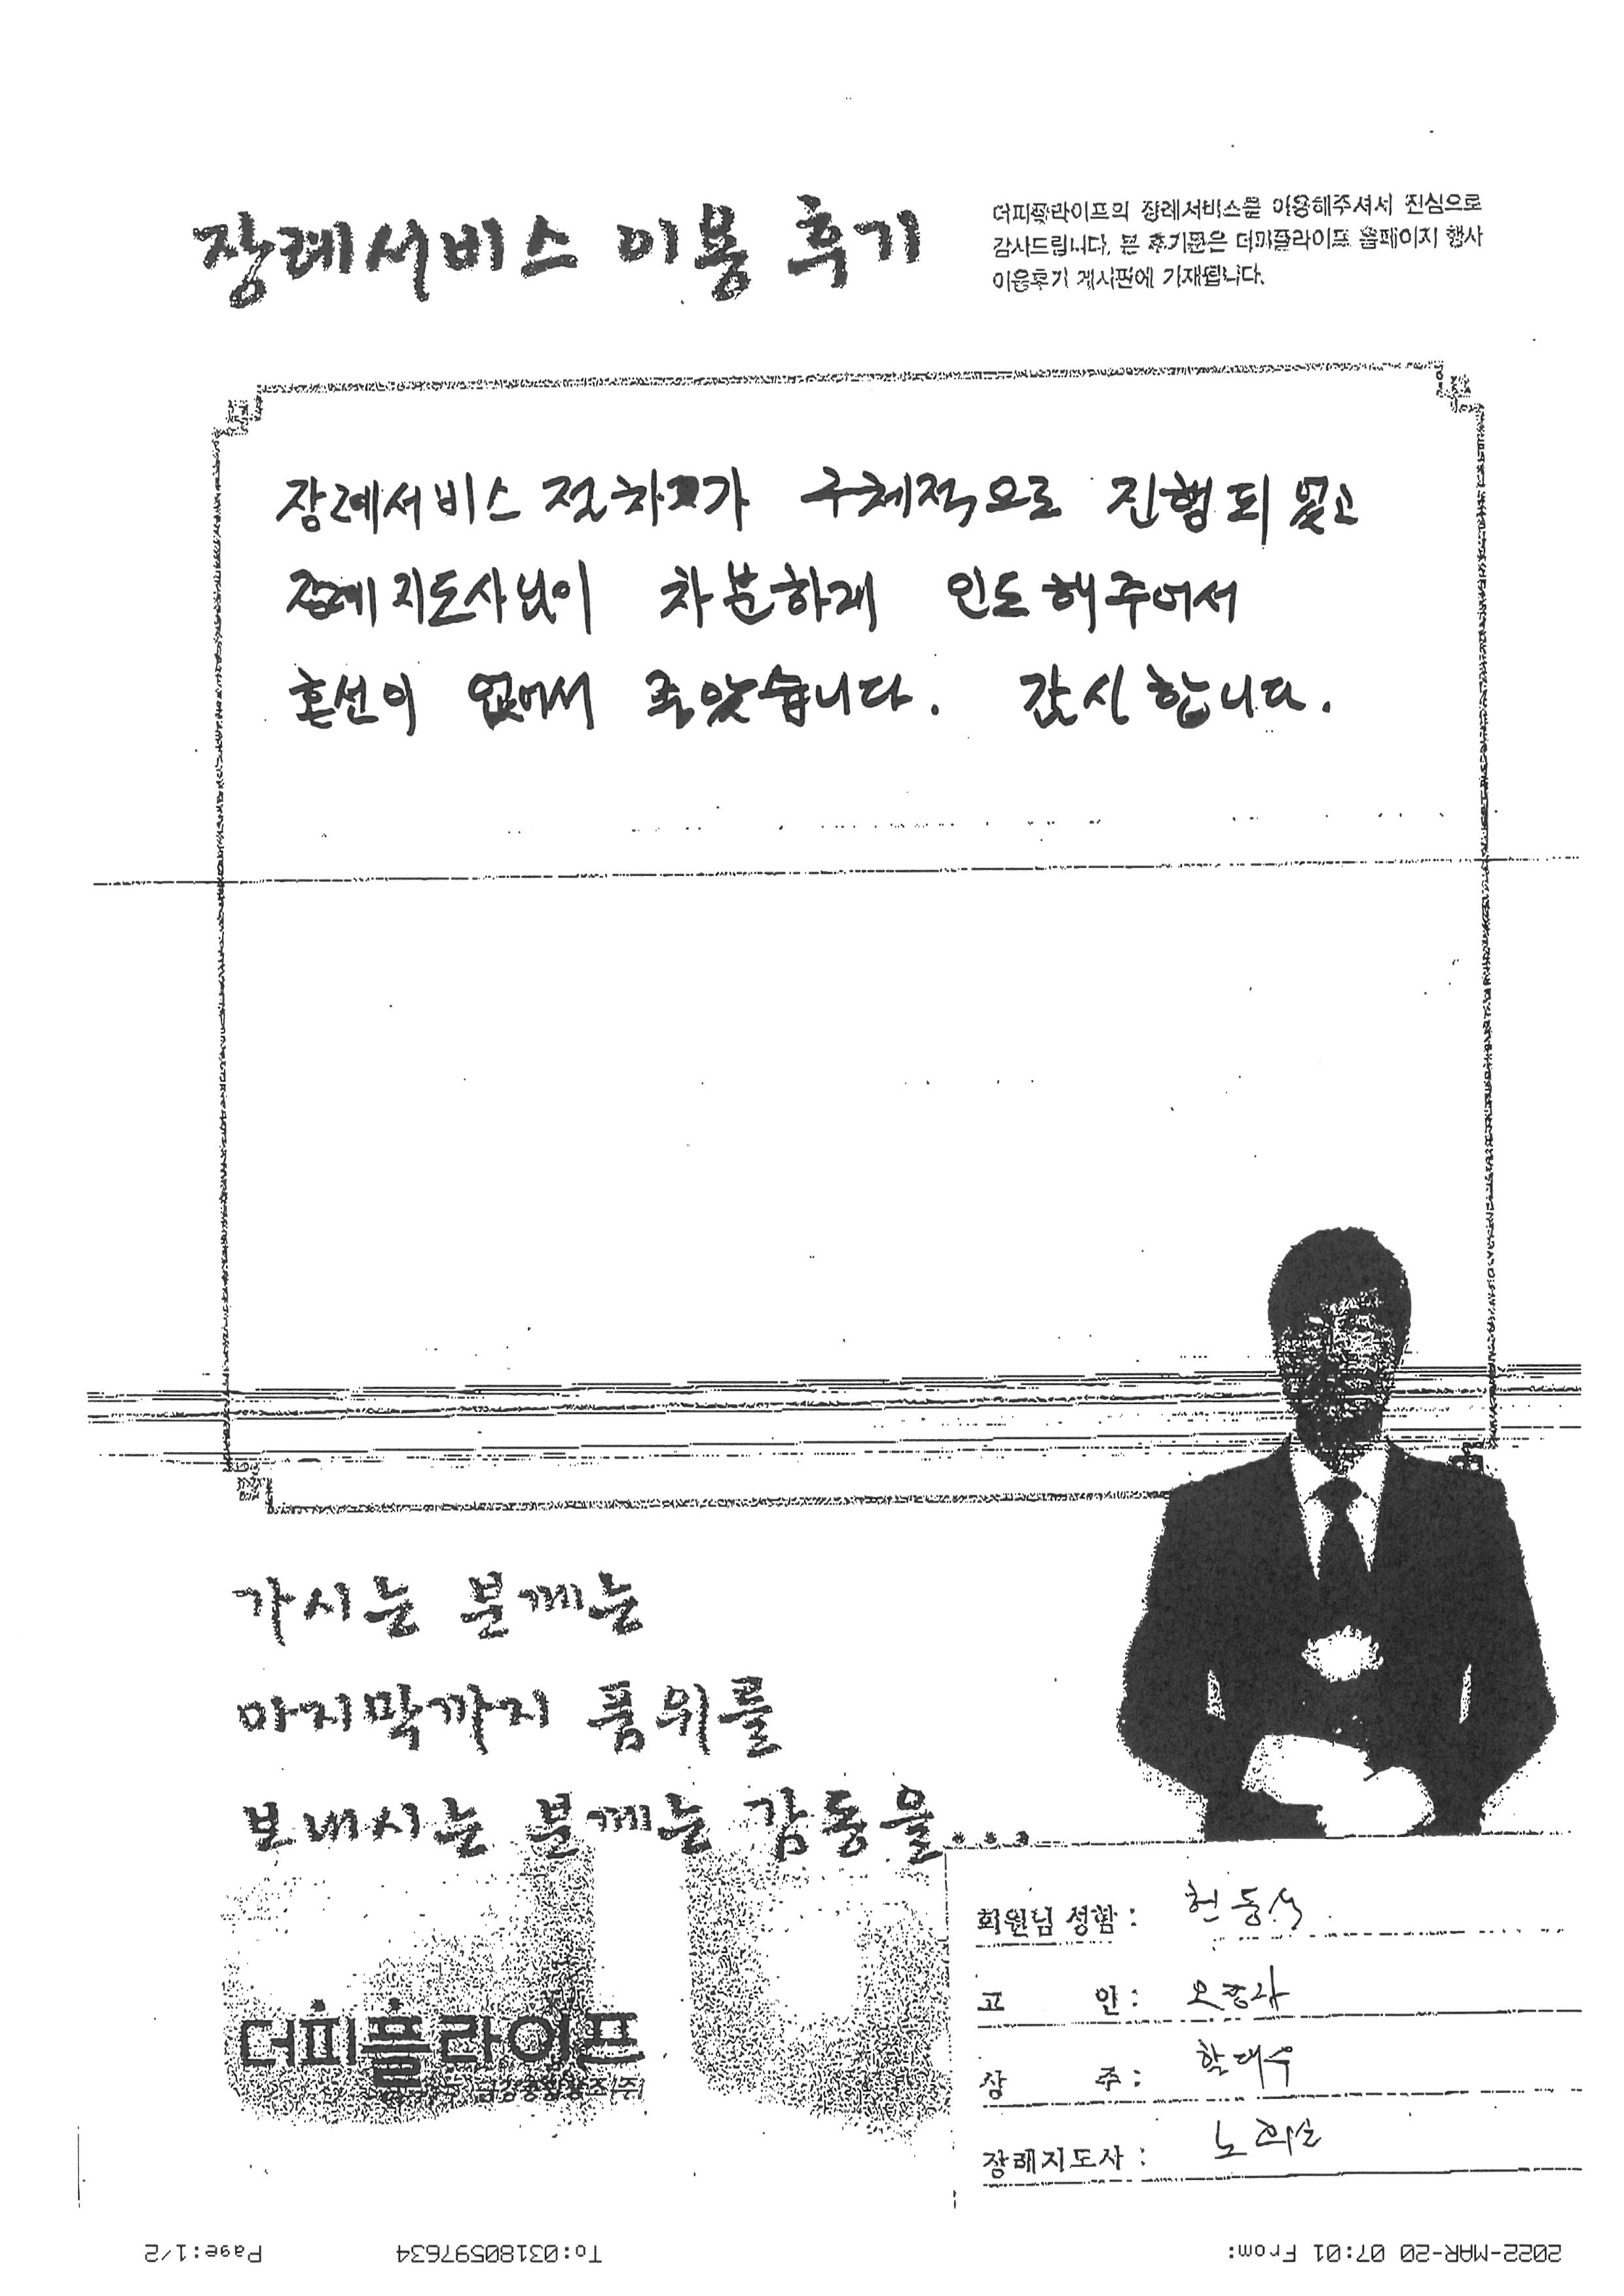 장례서비스 이용 후기
더피플라이프의 장례서비스를 이용해주셔서 진심으로
감사드립니다. 본 후기문은 더피플라이프 홈페이지 행사
이용후기 게시판에 기재됩니다.
장례서비스 절차가 구체적으로 진행되었고
장례지도사님이 차분하게 인도해주어서
혼선이 없어서 좋았습니다. 감사합니다.
가시는 분께는
마지막까지 품위를
보내시는 분께는 감동을...
더피플라이프
회원님 성함 : 현동수
고 인 :
상 주 :
장례지도사 :
2022-MAR-20 07:01 From: To:03180597634 Page:1/2